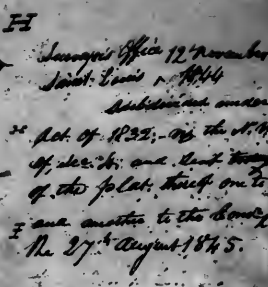 H
Surveyor's Office 12th November
Saint Louis 1844
Subdivided under
Act of 1832, - of the N. W
of sec. and sent
of the plat, thereof one to
and another to the
the 27th August 1845.